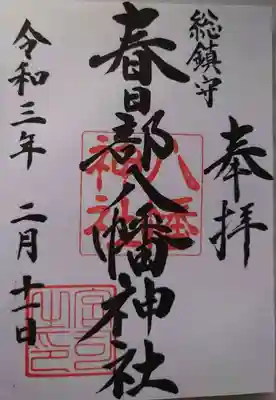 奉拝
総鎮守
春日部八幡神社
八幡神社
令和三年 二月 十一日
宮司之印